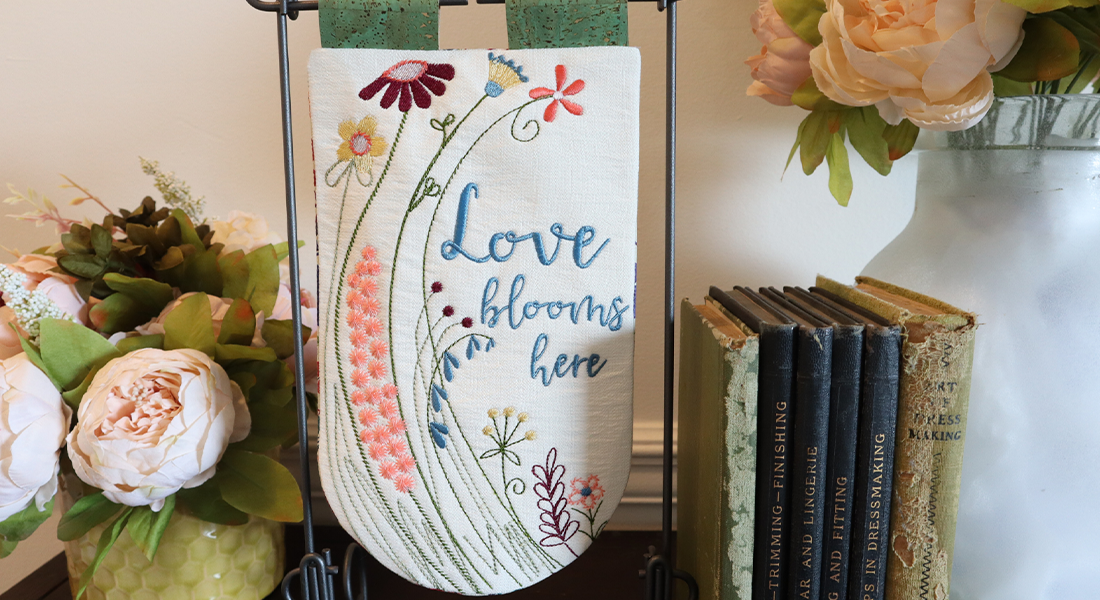 Love
blooms
here
TRIMMING—FINISHING
AR AND LINGERIE
G AND FITTING
PS IN DRESSMAKING
ART
DRESS
MAKING